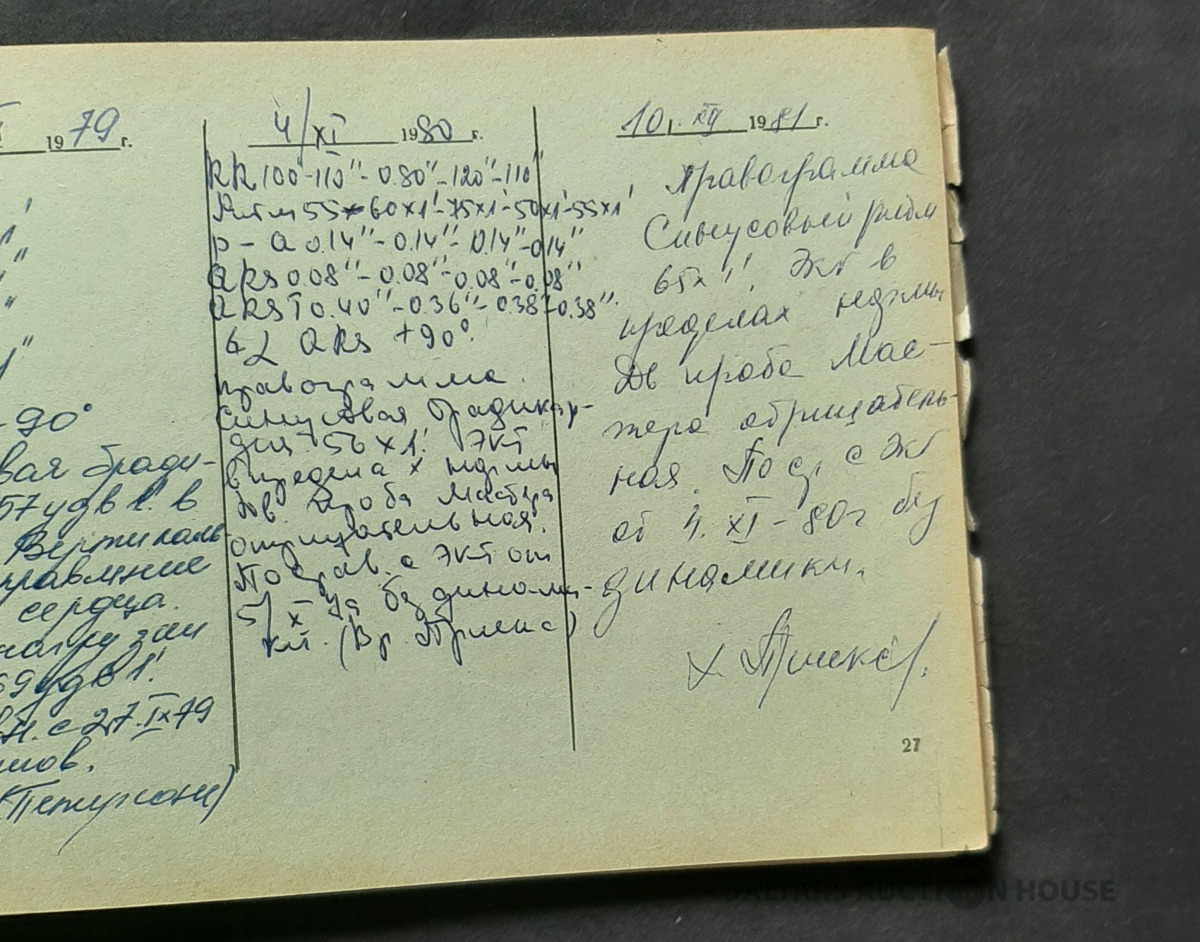 1979 г.
вая бради-
57 уд в 1'. в
Вертикаль-
правление
сердца.
нагрузки
69 уд в 1'.
с 27.IX79
4/XI 1980 г.
RR 100"-110"-0.80"-120"-110"
Ритм 55-60x1'-75x1'-50x1'-55x1'
p-Q 0.14"-0.14"-0.14"-0.14"
QRS 0.08"-0.08"-0.08"-0.08"
QRST 0.40"-0.36"-0.38"-0.38".
QRS +90°.
правограмма.
Синусовая брадикар-
дия 56x1'. ЭКГ
в пределах нормы
Дв. проба Мастера
отрицательная.
По срав. с ЭКГ от
5/X без динами-
ки. (Вр.
10. XII 1981 г.
Правограмма
Синусовый ритм
65x1'. ЭКГ в
пределах нормы
Дв проба Мас-
тера отрицатель-
ная. с ЭКГ
от 4. XI-80г без
динамики.
27
BALTARS AUCTION HOUSE